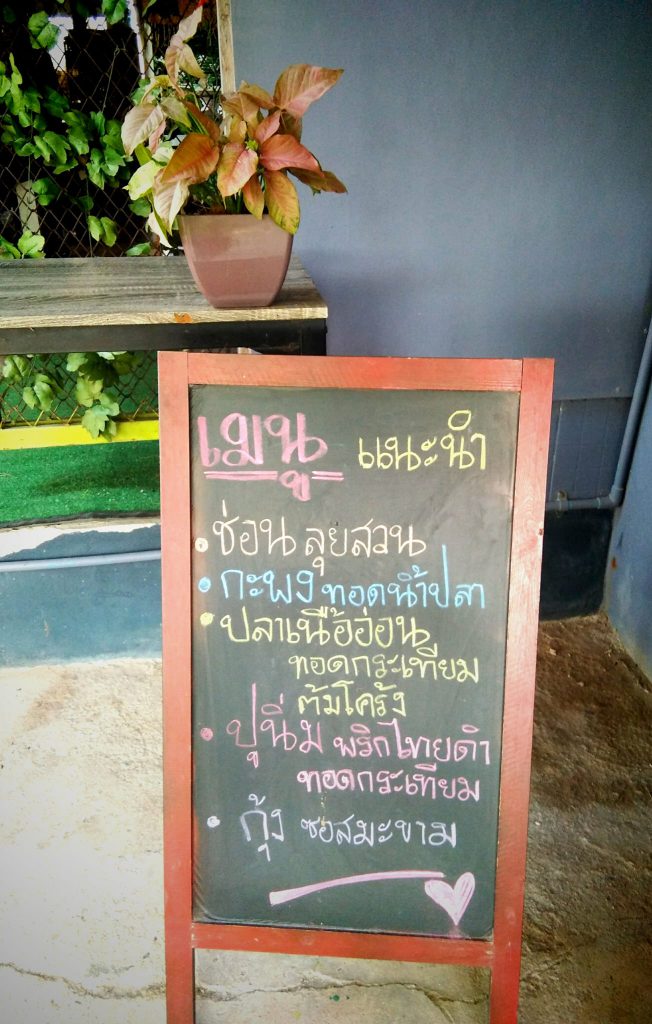 เมนู แนะนำ
• ช่อน ลุยสวน
• กะพง ทอดน้ำปลา
• ปลาเนื้ออ่อน
ทอดกระเทียม
ต้มโคร้ง
• ปูนิ่ม พริกไทยดำ
ทอดกระเทียม
• กุ้ง ซอสมะขาม